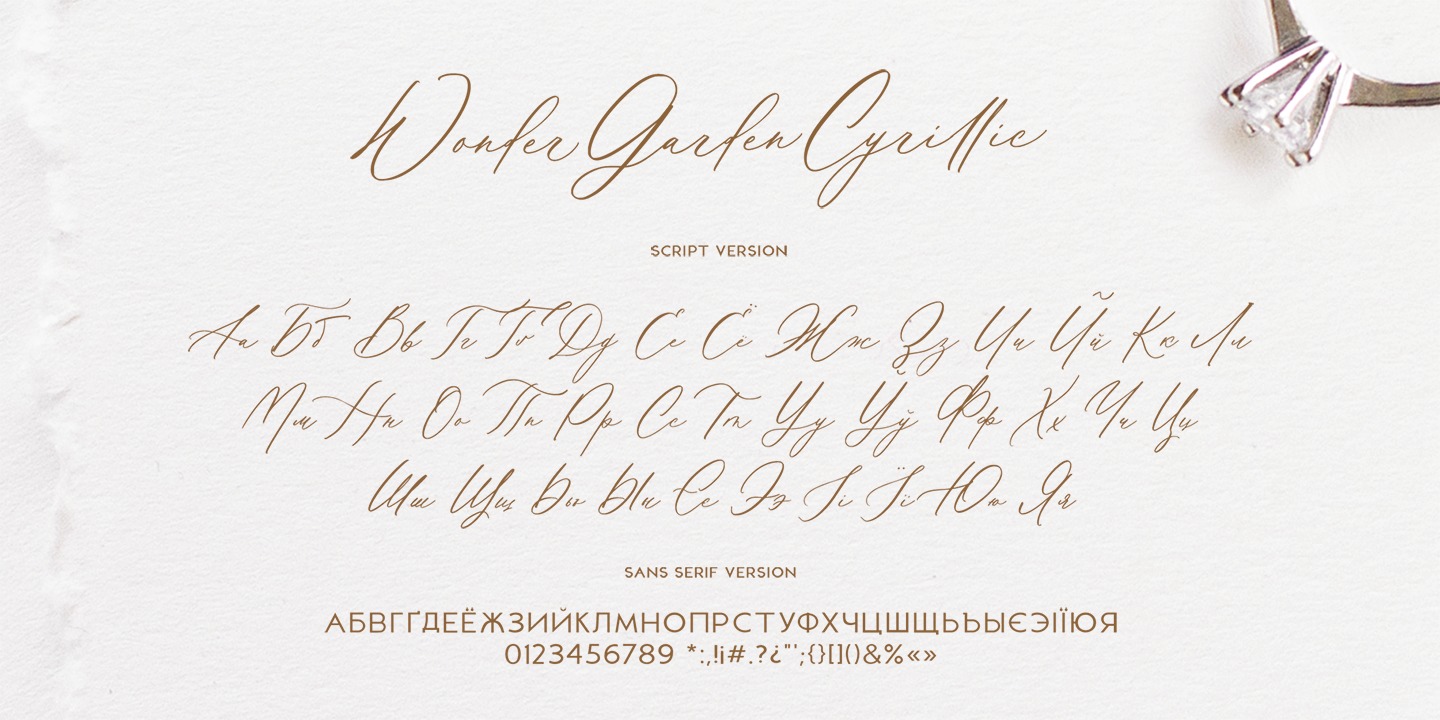 Wonder Garden Cyrillic
SCRIPT VERSION
Аа Бб Вв Гг Ґґ Дд Ее Ёё Жж Зз Ии Йй Кк Лл
Мм Нн Оо Пп Рр Сс Тт Уу Ўў Фф Хх Чч Цц
Шш Щщ Ьь Ыы Єє Ээ Іі Її Юю Яя
SANS SERIF VERSION
АБВГҐДЕЁЖЗИЙКЛМНОПРСТУФХЧЦШЩЬЪЫЄЭІЇЮЯ
0123456789 *:,!¡#.?¿"';{}[]()&%«»